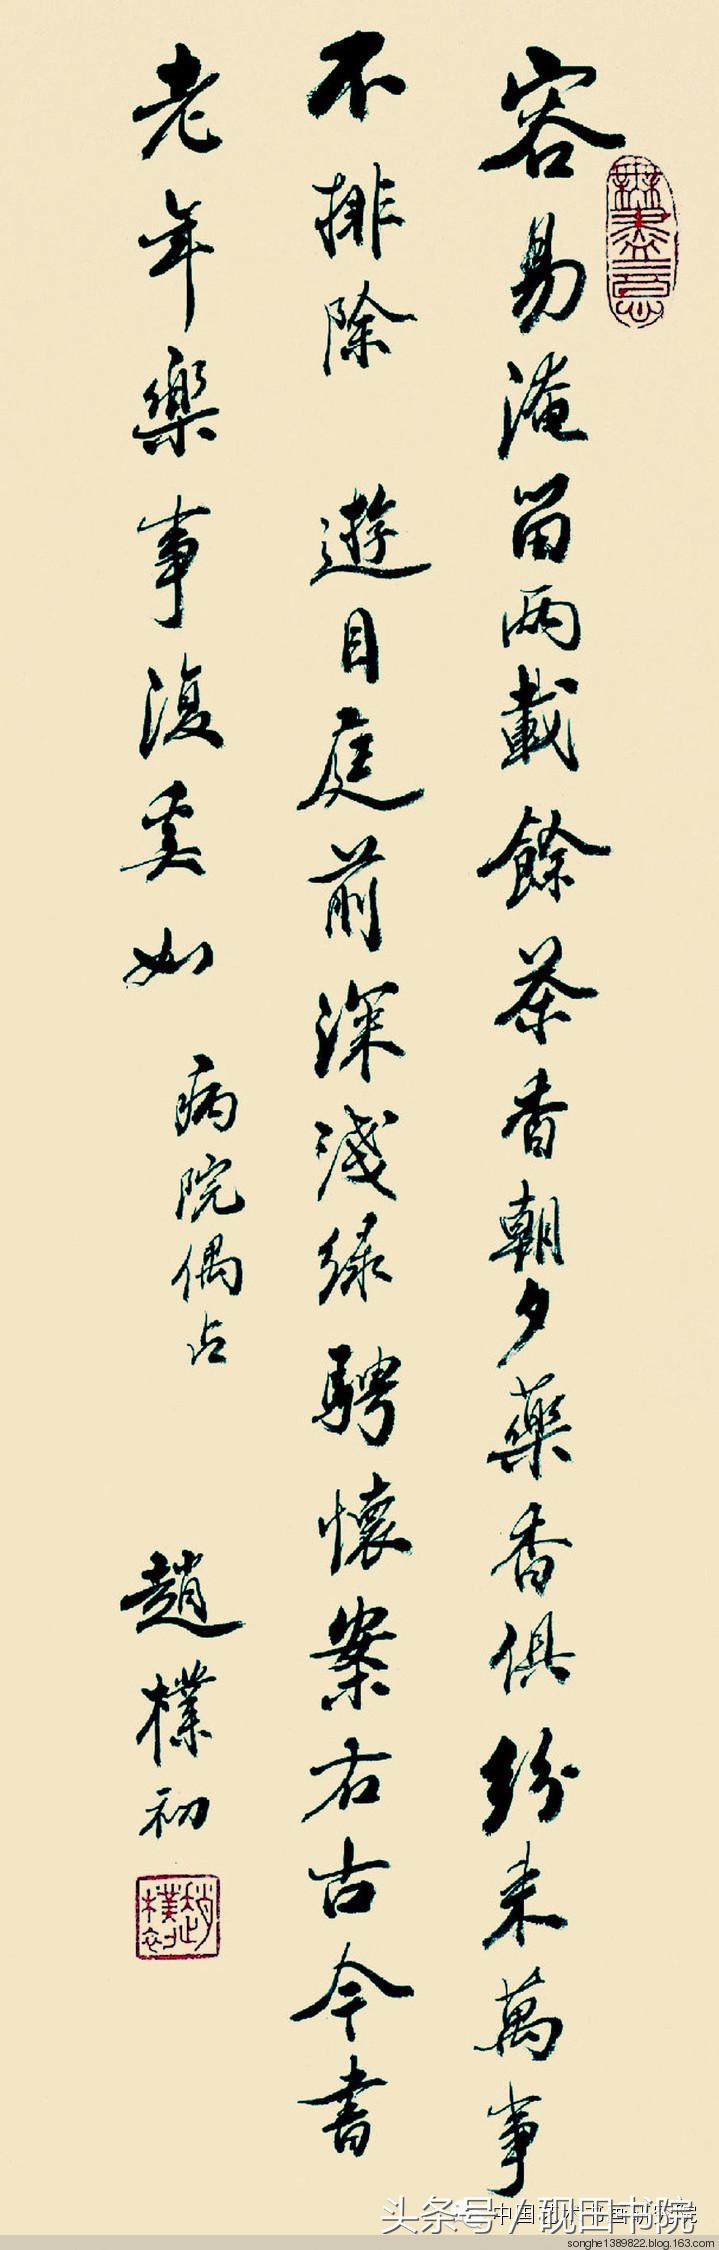 容易淹留兩載餘茶香朝夕藥香俱紛来萬事
不排除 遊目庭前深淺緑騁懷案右古今書
老年樂事復奚如
病院偶占
趙樸初
無盡意
趙樸初
头条号/砚田书院
songhe1389822.blog.163.com